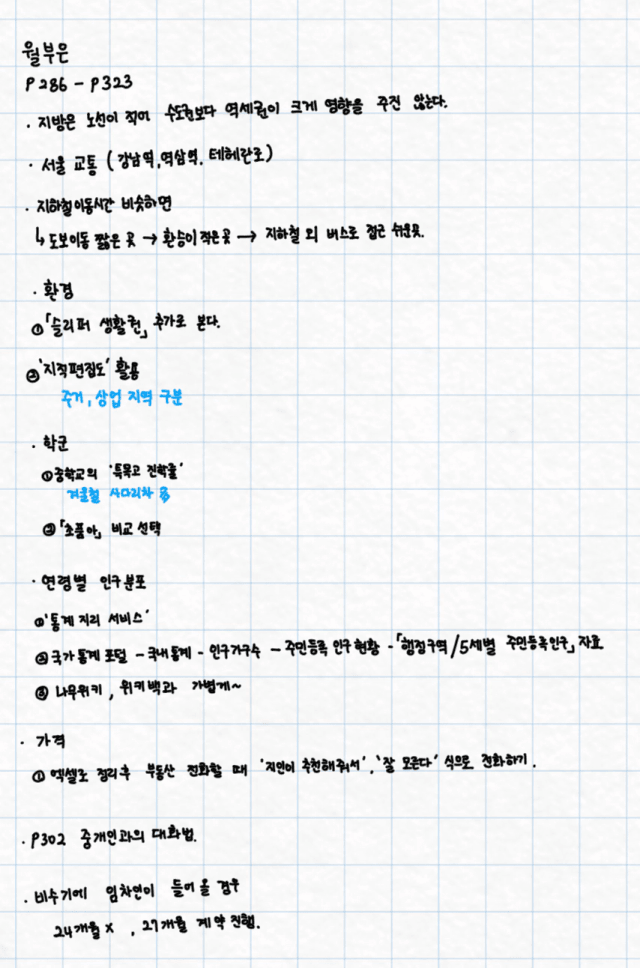 월부은
P286 - P323
· 지방은 노선이 적어 수도권보다 역세권이 크게 영향을 주진 않는다.
· 서울 교통 (강남역, 역삼역, 테헤란로)
· 지하철 이동시간 비슷하면
↳ 도보이동 짧은 곳 → 환승이 적은 곳 → 지하철 외 버스로 접근 쉬운곳.
· 환경
①「슬리퍼 생활권」 추가로 본다.
② '지적편집도' 활용
주거, 상업 지역 구분
· 학군
① 중학교의 '특목고 진학률'
겨울철 사다리차
②「초품아」 비교 선택
· 연령별 인구분포
① '통계 지리 서비스'
② 국가통계포털 - 국내통계 - 인구가구수 - 주민등록 인구현황 -「행정구역/5세별 주민등록인구」 자료
③ 나무위키, 위키백과 가볍게~
· 가격
① 엑셀로 정리 후 부동산 전화할 때 '지인이 추천해줘서', '잘 모른다' 식으로 전화하기.
· P302 중개인과의 대화법.
· 비수기에 임차인이 들어올 경우
24개월 x , 27개월 계약 진행.